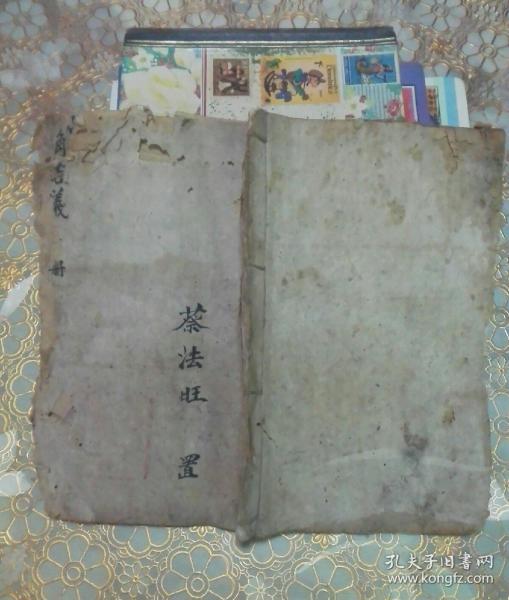 角吉義
册
蔡法旺 置
孔夫子旧书网
www.kongfz.com